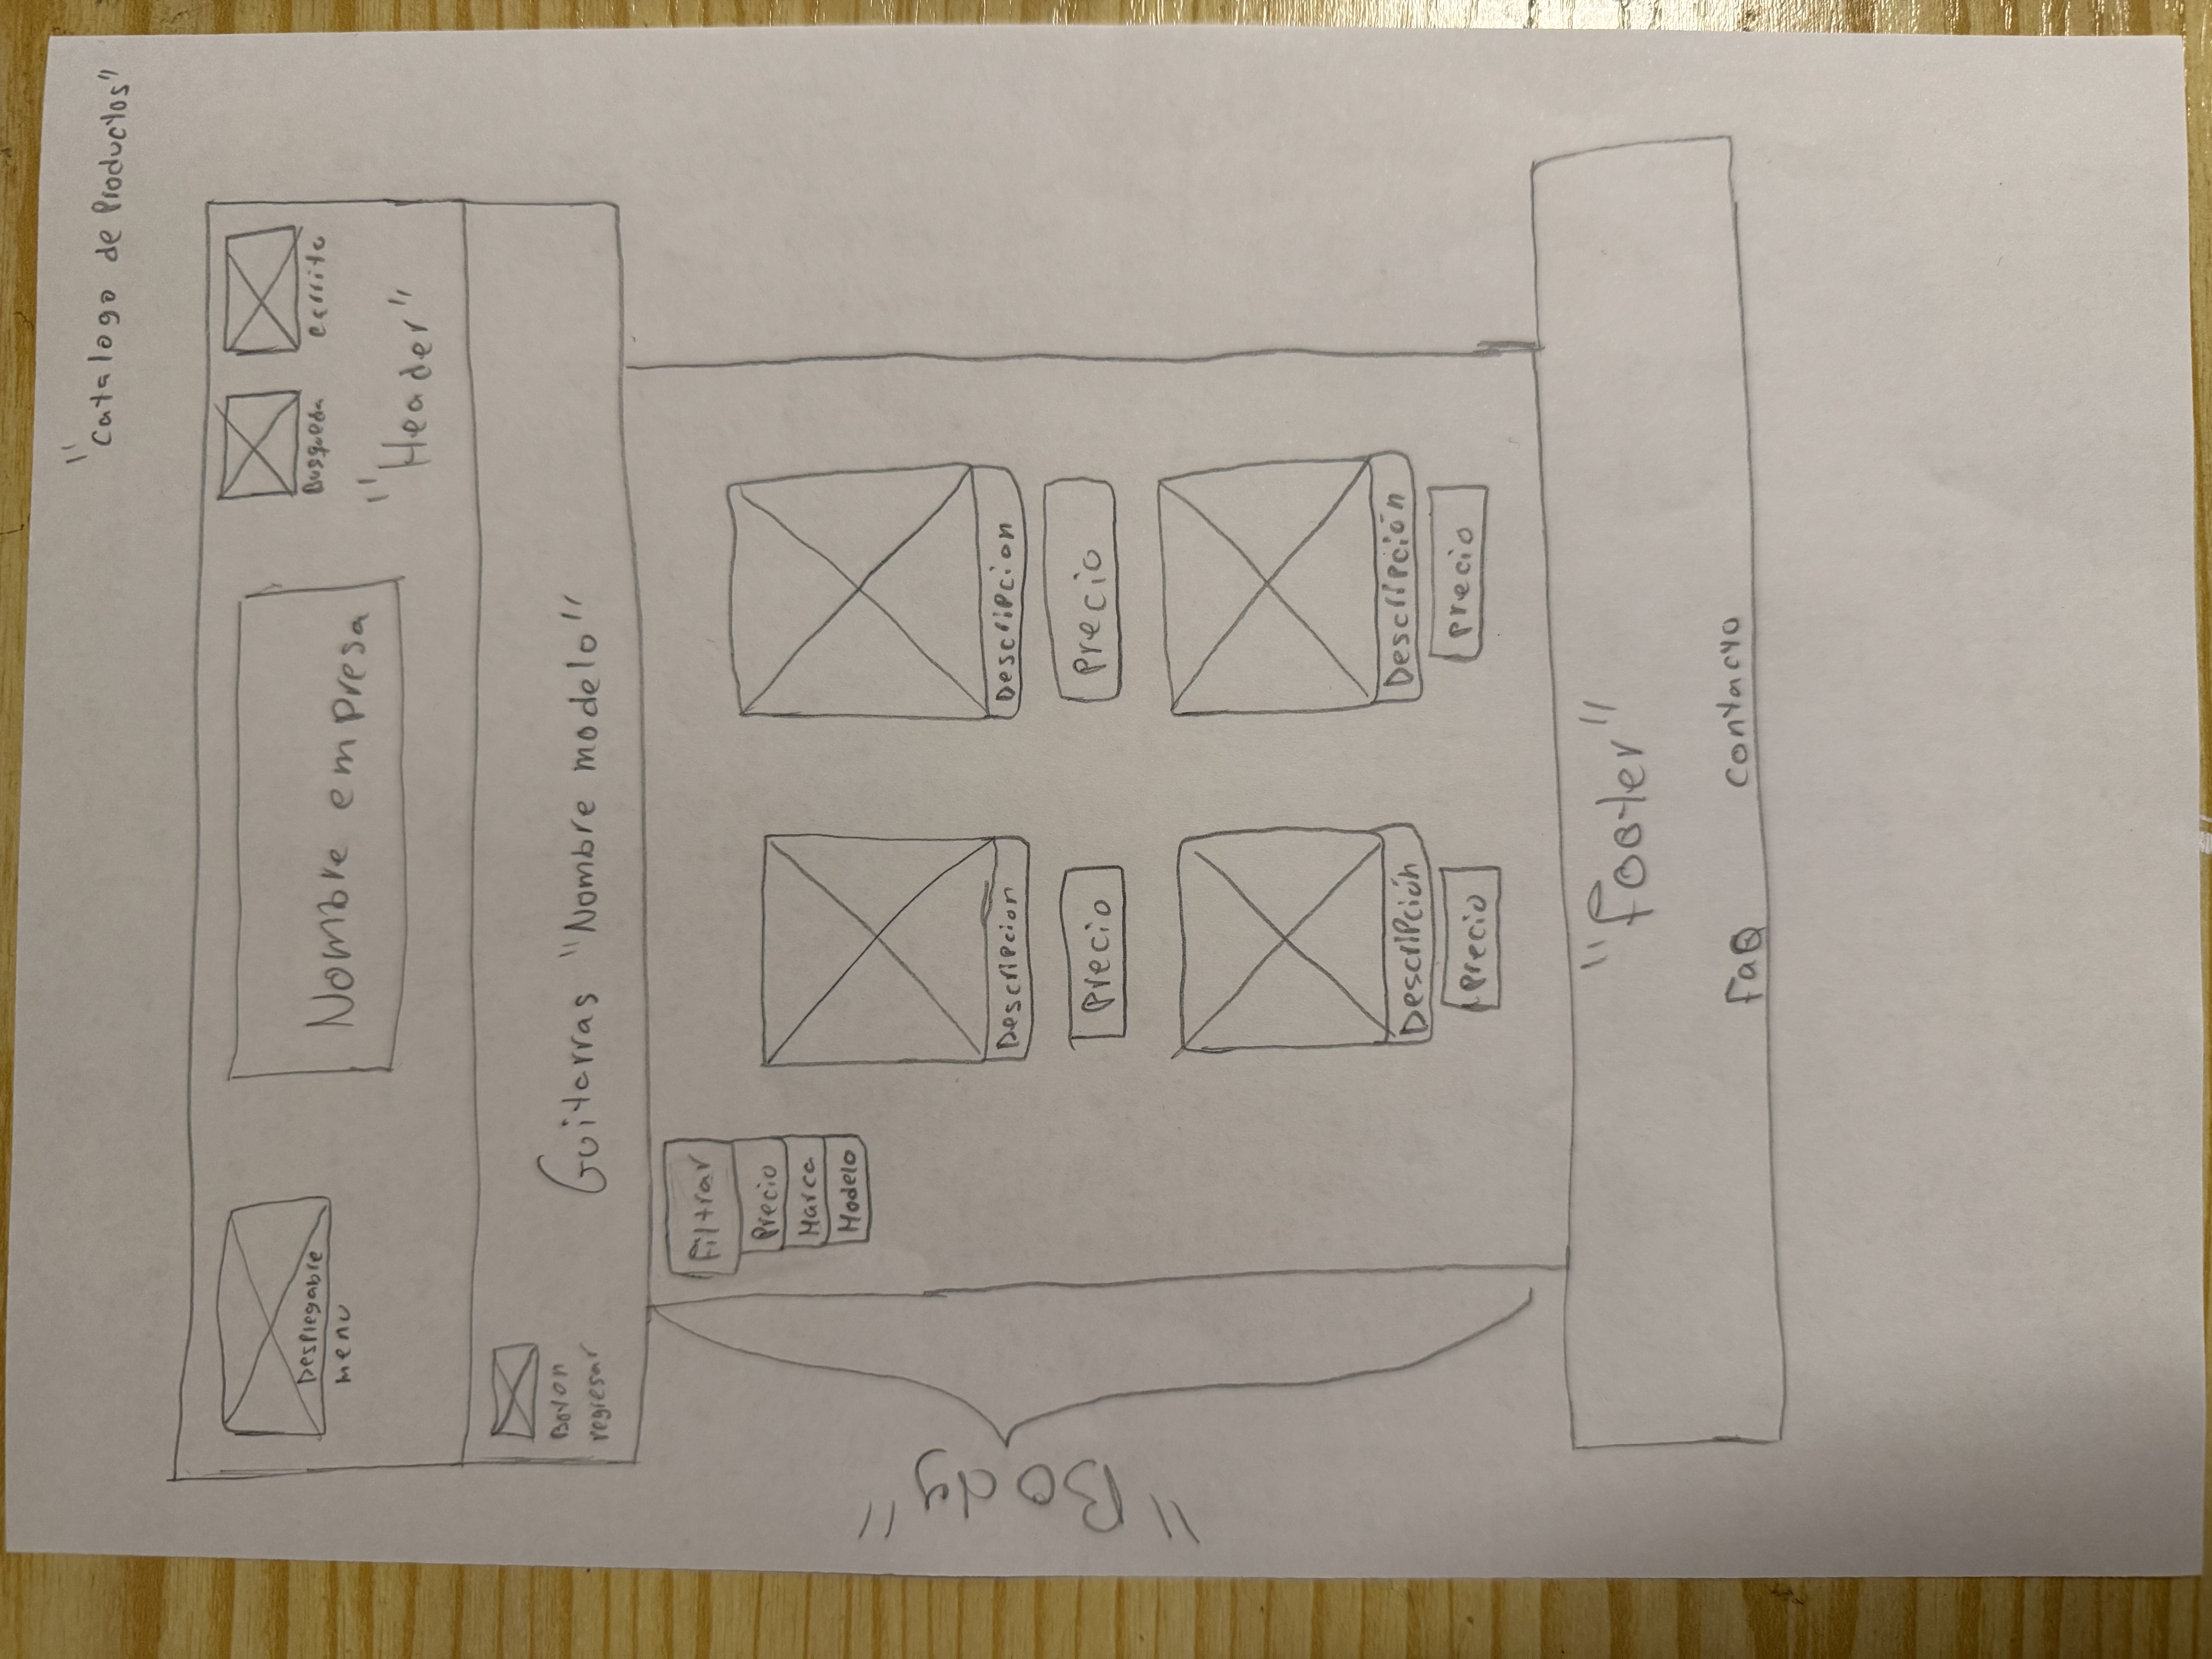 "Catalogo de Productos"
Desplegable
menu
Nombre empresa
Busqueda
carrito
"Header"
Boton
regresar
Guitarras "Nombre modelo"
Filtrar
Precio
Marca
Modelo
"Body"
Descripcion
Descripcion
Precio
Precio
Descripción
Descripción
Precio
Precio
"Footer"
FaQ
contacto